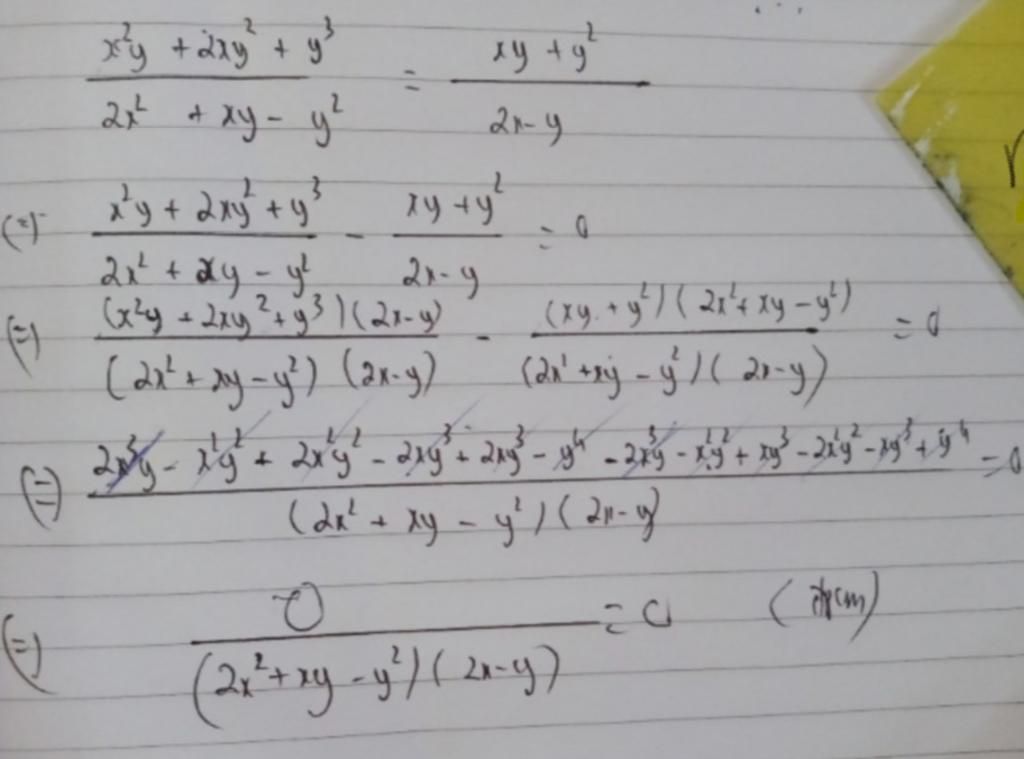 x²y + 2xy² + y³ / 2x² + xy - y² = xy + y² / 2x - y
(=) x²y + 2xy² + y³ / 2x² + xy - y² - xy + y² / 2x - y = 0
(=) (x²y + 2xy² + y³)(2x - y) / (2x² + xy - y²)(2x - y) - (xy + y²)(2x² + xy - y²) / (2x² + xy - y²)(2x - y) = 0
(=) 2x³y - x²y² + 2x²y² - 2xy³ + 2xy³ - y⁴ - 2x³y - x²y² + xy³ - 2x²y² - xy³ + y⁴ / (2x² + xy - y²)(2x - y) = 0
(=) 0 / (2x² + xy - y²)(2x - y) = 0 (đpcm)